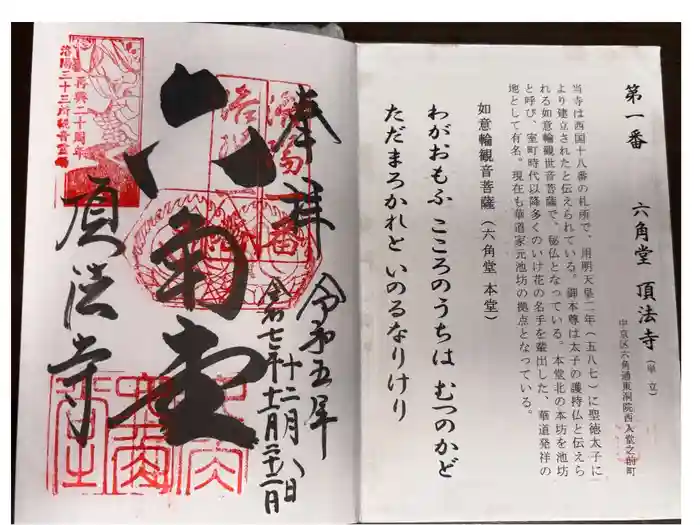 第一番　六角堂　頂法寺（単立）
中京区六角通東洞院西入堂之前町
当寺は西国十八番の札所で、用明天皇二年（五八七）に聖徳太子に
より建立されたと伝えられている。御本尊は太子の護持仏と伝えら
れる如意輪観世音菩薩で、秘仏となっている。本堂北の本坊を池坊
と呼び、室町時代以降多くのいけ花の名手を輩出した、華道発祥の
地として有名。現在も華道家元池坊の拠点となっている。
如意輪観音菩薩（六角堂 本堂）
わがおもふ こころのうちは むつのかど
ただまろかれと いのるなりけり
奉拝
令和五年
十二月八日
令和七年十二月二十一日
六角堂
頂法寺
再興二十周年
洛陽三十三所観音霊場
洛陽